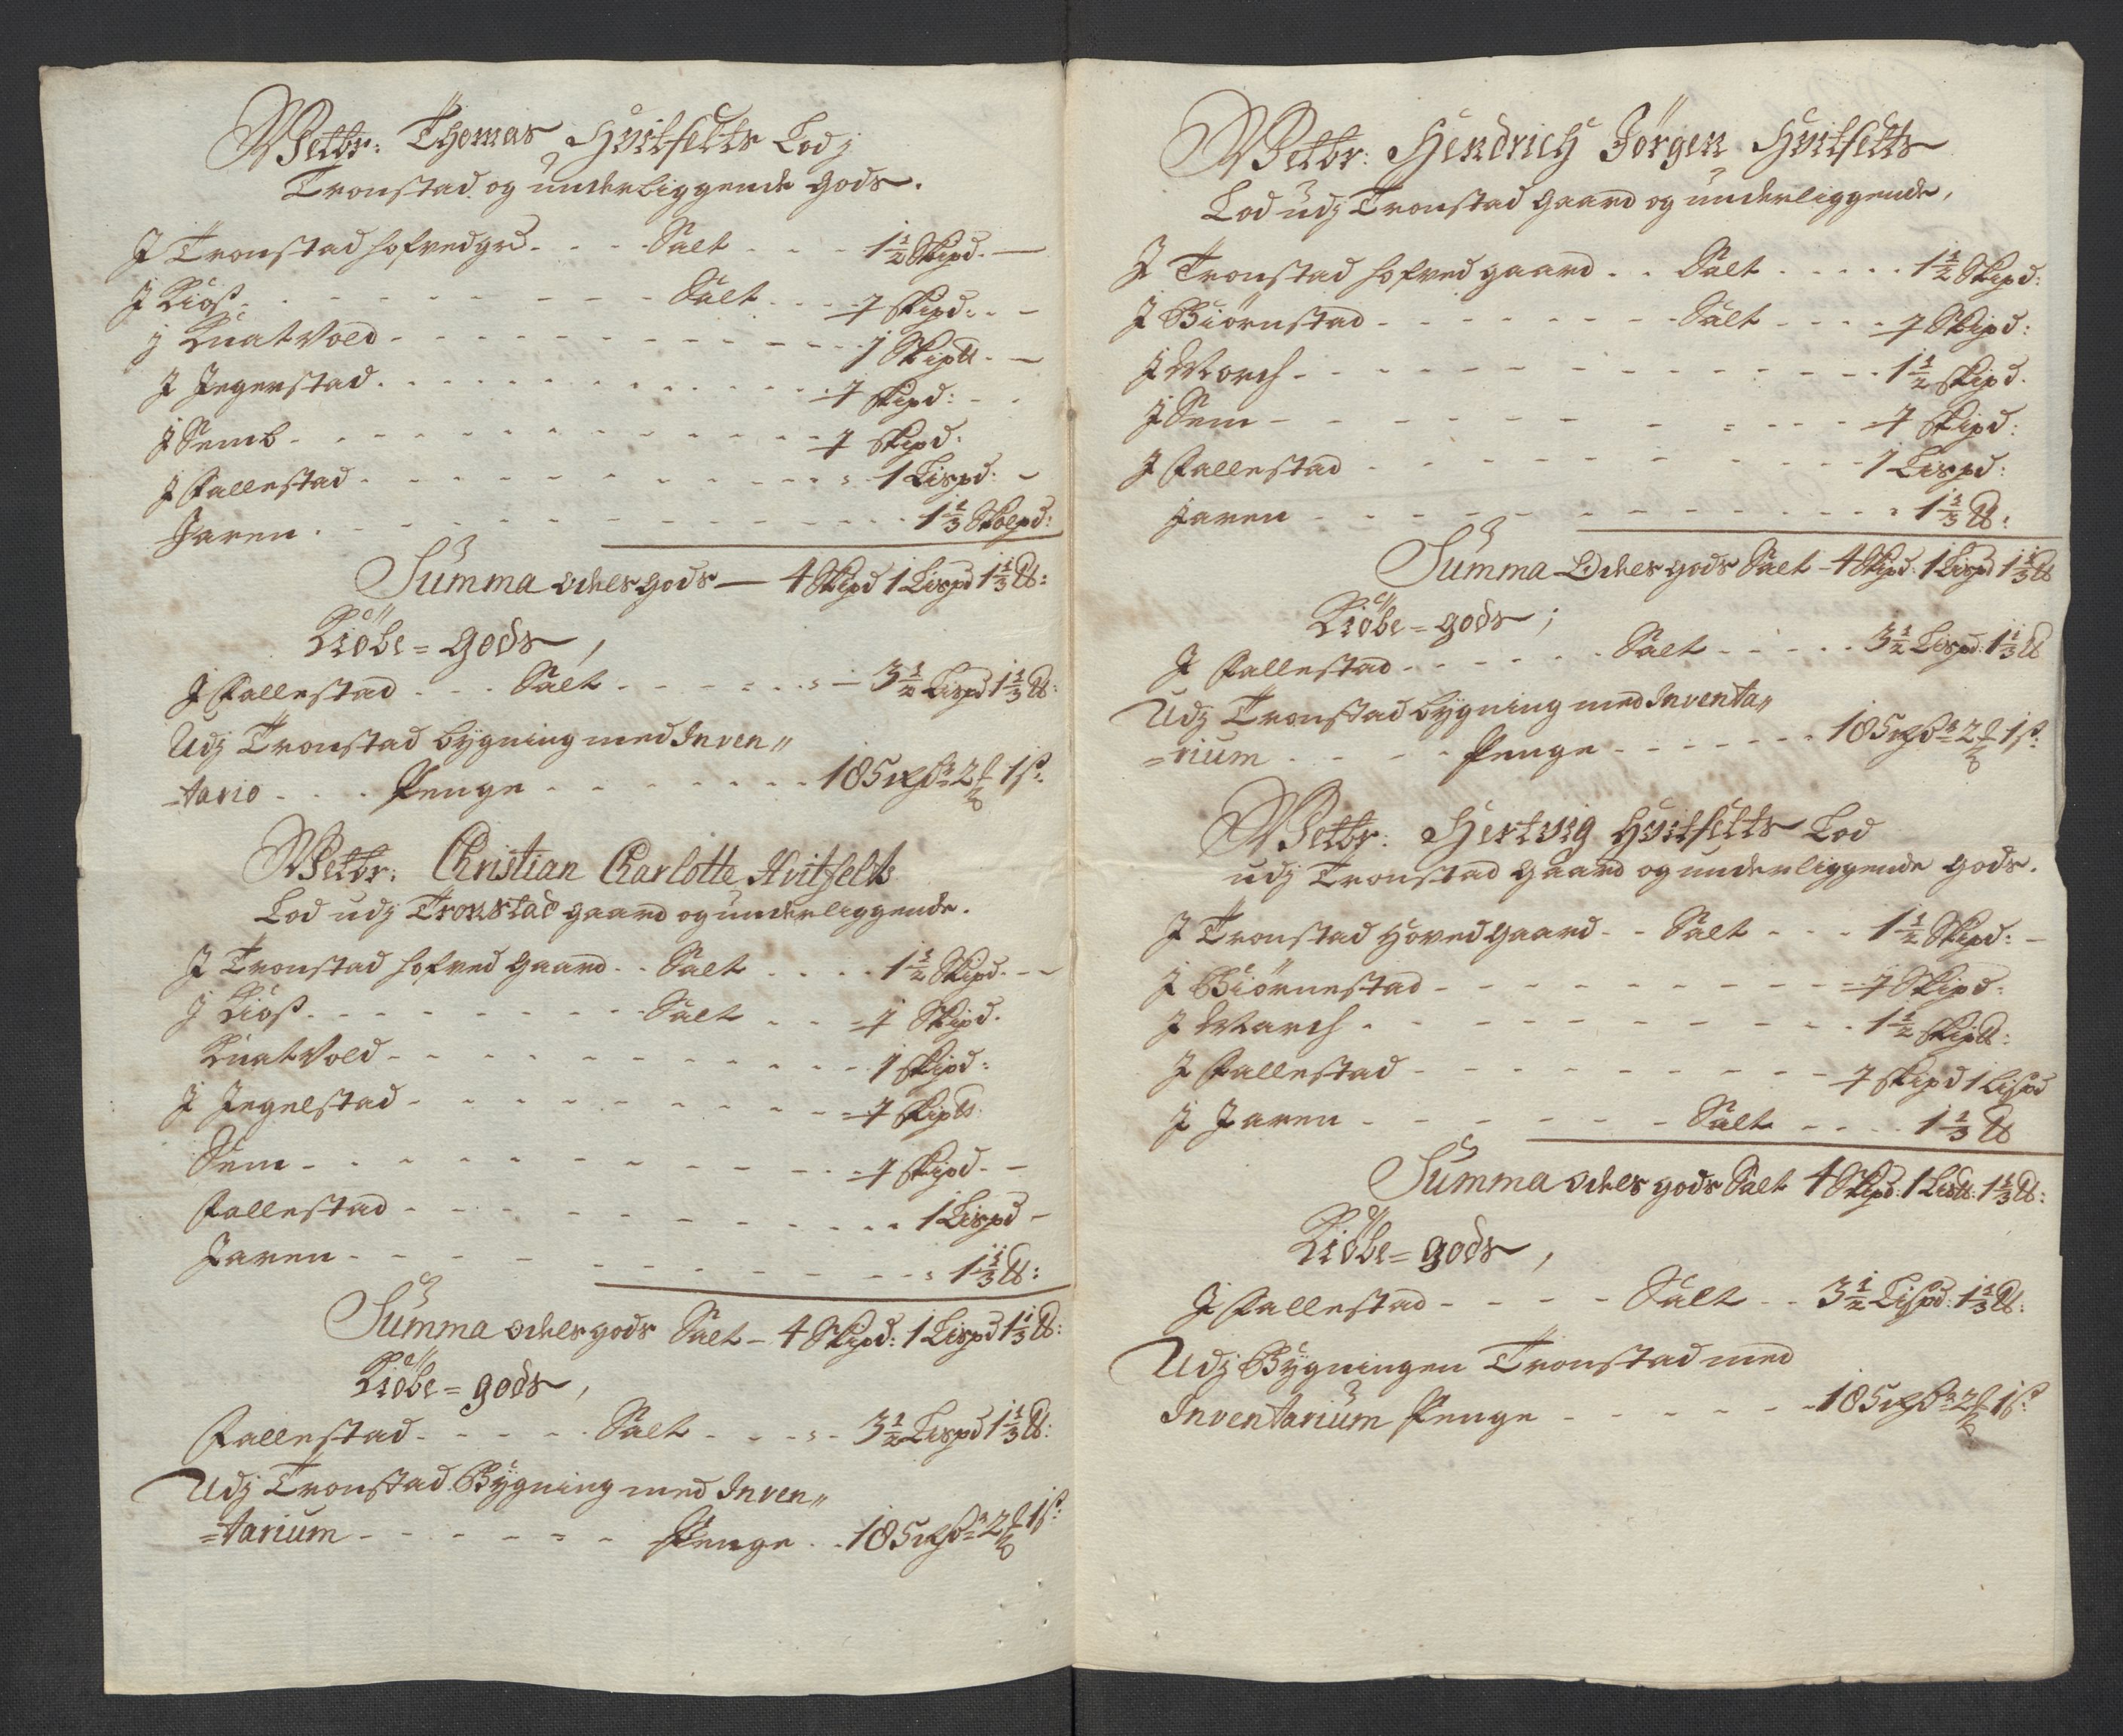 Welbr: Thomas Hvitfeldts Lod j
Tronstad og underliggende gods.
J Tronstad hofvedgrd. - - - Salt - - - 1 1/2 Skipd. -
J Kiøs - - - - - - - - Salt - - - 1 skipd: - -
J Knatvold - - - - - - - - - - - 1 Skipd. -
J Jegerstad - - - - - - - - - - - 1 skipd: - -
J Semb - - - - - - - - - - - - 1 skipd:
J Fallestad - - - - - - - - - - - 1 Lispd: -
Jaren - - - - - - - - - - - - 1 1/3 Skolpd:
Summa odels gods - 4 Skipd 1 Lispd 1 1/3 ℔:
Kiöbe=gods,
J Fallestad - - - Salt - - - - - - 3 1/2 Lispd 1 1/3 ℔:
Udj Tronstad bygning med Inven„
=tario - - - Penge - - - - - - - 185 rd 2 1 ß:
Welbr: Christian Charlotte Hvitfelds
Lod udj Tronstad gaard og underliggende.
J Tronstad hofved gaard - - Salt - - - - 1 1/2 Skipd. - -
J Kiøs - - - - - - - - Salt - - - 1 Skipd.
Knatvold - - - - - - - - - - 1 skipd:
J Jegelstad - - - - - - - - - - 1 skipd:
Sem - - - - - - - - - - - 1 skipd - -
Fallestad - - - - - - - - - - - 1 Lispd -
Jaren - - - - - - - - - - - 1 1/3 ℔:
Summa odels gods Salt - 4 Skipd: 1 Lispd 1 1/3 ℔:
Kiöbe=gods,
Fallestad - - - - - Salt - - - - 3 1/2 Lispd 1 1/3 ℔:
Udj Tronstad Bygning med Inven„
=tarium - - - - - - - Penge - - 185 rd 2 1 ß:
Welbr: Hendrich Jörgen Hvitfelts
Lod udj Tronstad gaard og underliggende,
J Tronstad hofved gaard - - Salt - - - - - 1 1/2 Skipd:
J Biörnstad - - - - - - - - Salt - - - - 1 Skipd:
J March - - - - - - - - - - - - 1 1/2 skipd.
J Sem - - - - - - - - = - - - 1 skipd:
J Fallestad - - - - - - - - - - - 1 Lispd:
Jaren - - - - - - - - - - - - 1 1/3 ℔:
Summa Odels gods Salt - 4 Skipd: 1 Lispd 1 1/3 ℔
Kiöbe=gods;
J Fallestad - - - - - - Salt - - - - - 3 1/2 Lispd: 1 1/3 ℔
Udj Tronstad bygning med Inventa„
=rium - - - - Penge - - - - - - - 185 rd 2 1 ß:
Welbr: Hertvig Hvitfelts Lod
udj Tronstad gaard og underliggende gods.
J Tronstad Hoved gaard - - Salt - - - 1 1/2 Skipd: -
J Biörnestad - - - - - - - - - - 1 Skipd:
J March - - - - - - - - - - 1 1/2 skipd:
J Fallestad - - - - - - - - - - 1 skipd 1 Lispd
J Jaren - - - - - - Salt - - - - 1 1/3 ℔
Summa odels gods Salt 4 Skipd: 1 Lis℔: 1 1/3 ℔:
Kiöbe=gods,
J Fallestad - - - - - Salt - - 3 1/2 Lispd: 1 1/3 ℔:
Udj Bygningen Tronstad med
Inventarium Penge - - - - - - 185 rd 2 1 ß: